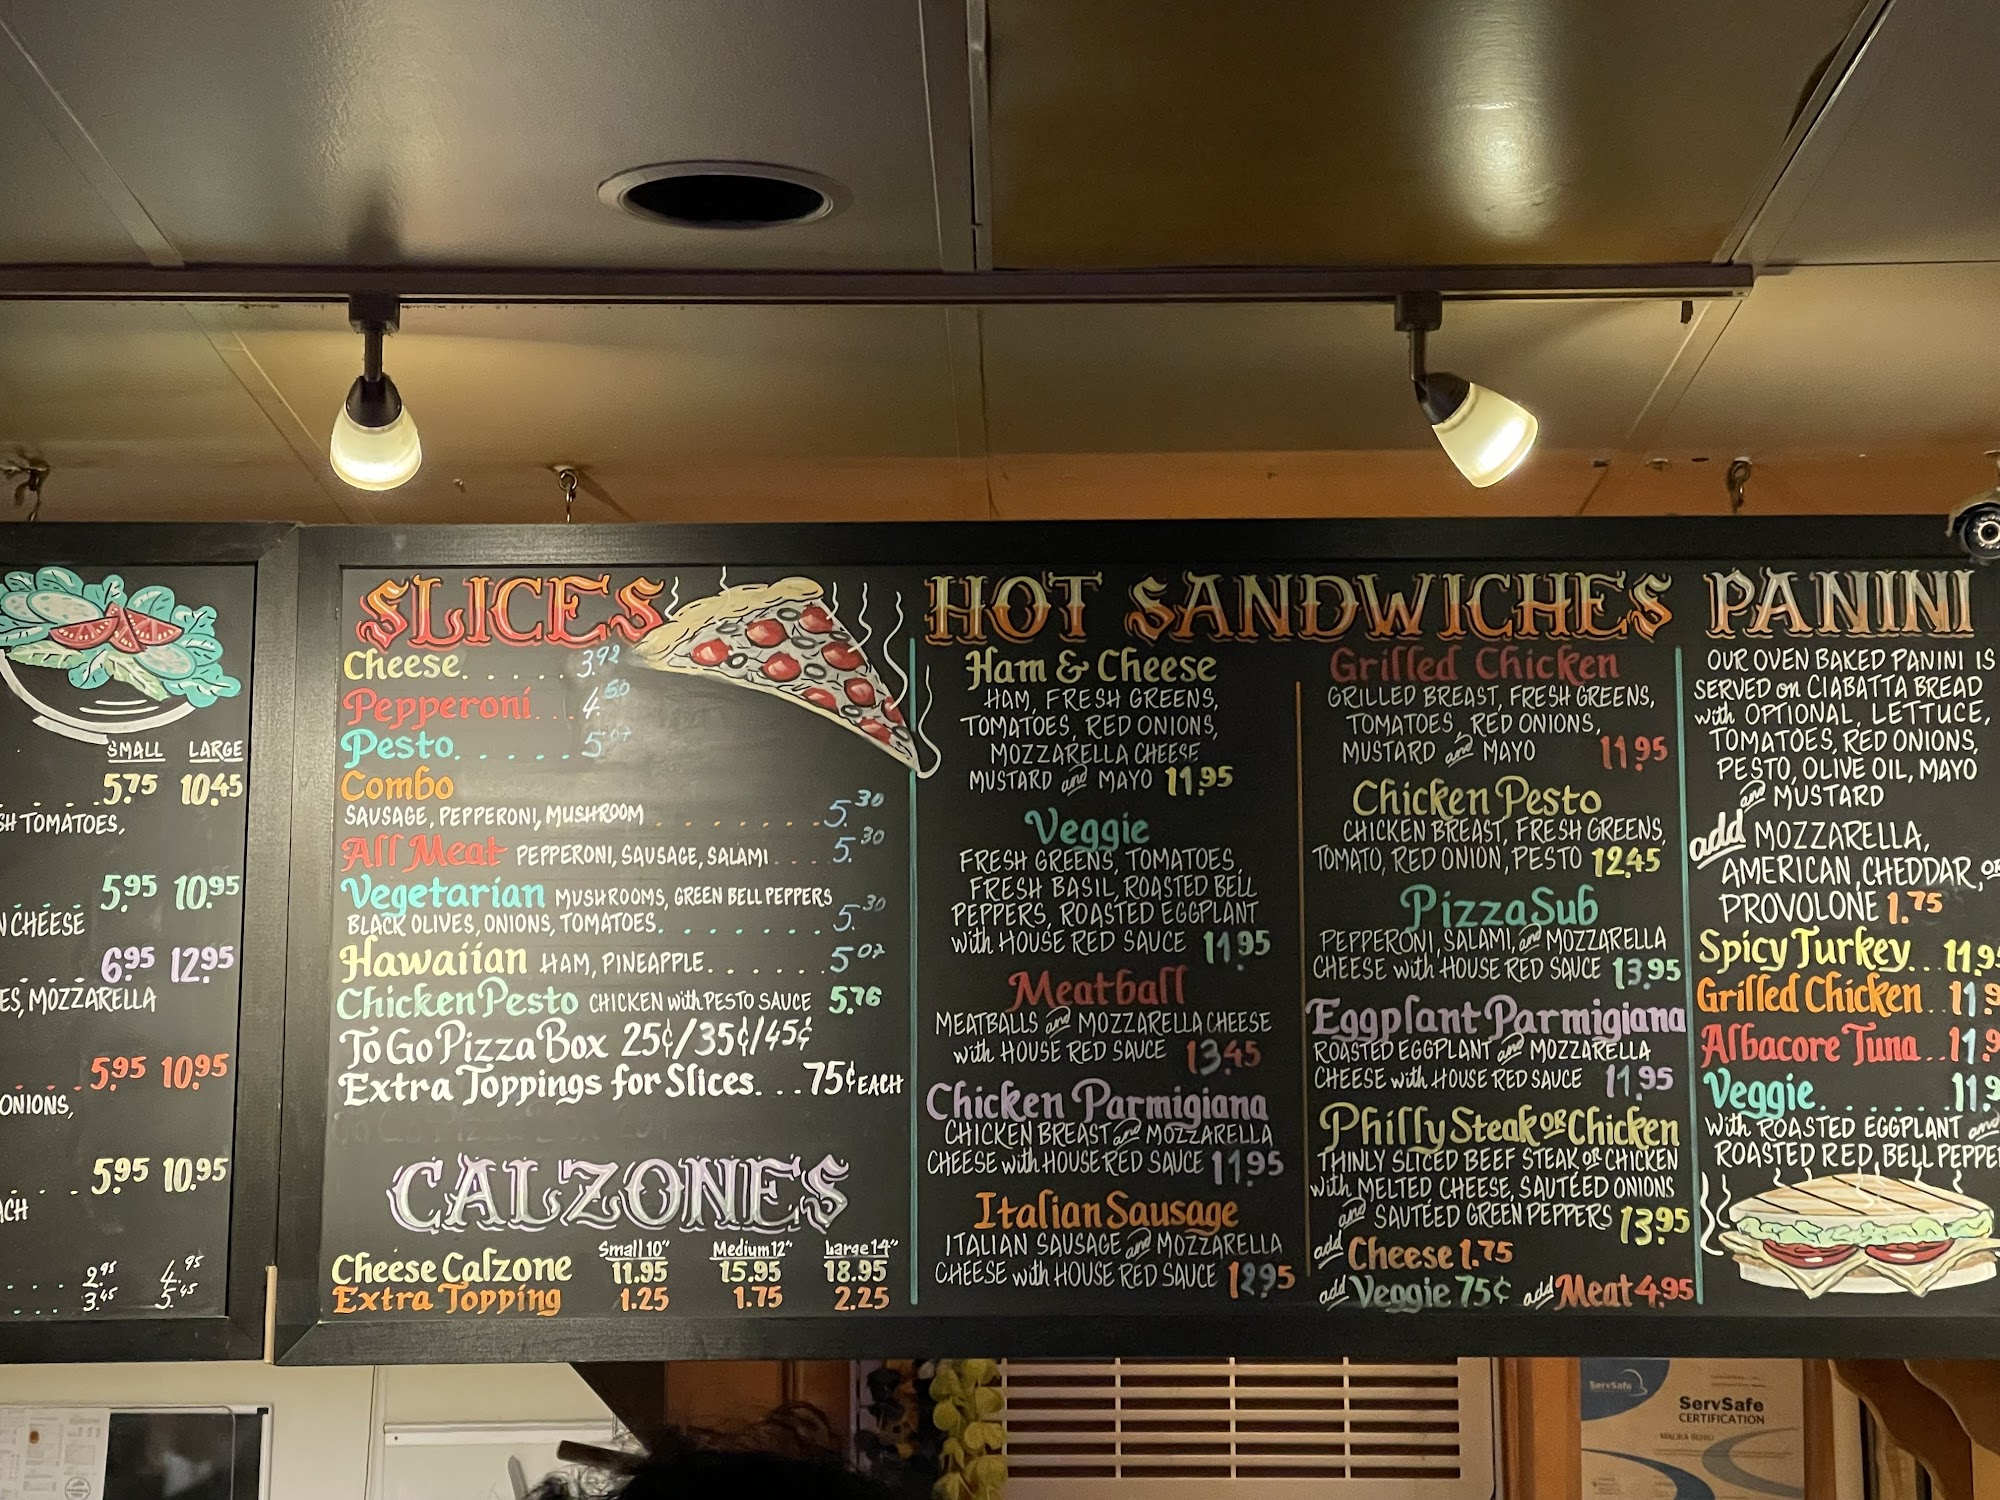 SMALL LARGE
5.75 10.45
TOMATOES,
5.95 10.95
CHEESE
6.95 12.95
MOZZARELLA
5.95 10.95
ONIONS,
5.95 10.95
2.95 4.95
3.45 5.45
SLICES
Cheese...... 3.92
Pepperoni... 4.50
Pesto...... 5.07
Combo
SAUSAGE, PEPPERONI, MUSHROOM ........ 5.30
All Meat PEPPERONI, SAUSAGE, SALAMI.... 5.30
Vegetarian MUSHROOMS, GREEN BELL PEPPERS
BLACK OLIVES, ONIONS, TOMATOES........ 5.30
Hawaiian HAM, PINEAPPLE....... 5.07
Chicken Pesto CHICKEN with PESTO SAUCE 5.76
To Go Pizza Box 25¢/35¢/45¢
Extra Toppings for Slices...75¢ EACH
CALZONES
Small 10" Medium 12" Large 14"
Cheese Calzone 11.95 15.95 18.95
Extra Topping 1.25 1.75 2.25
HOT SANDWICHES
Ham & Cheese
HAM, FRESH GREENS,
TOMATOES, RED ONIONS,
MOZZARELLA CHEESE
MUSTARD and MAYO 11.95
Veggie
FRESH GREENS, TOMATOES,
FRESH BASIL, ROASTED BELL
PEPPERS, ROASTED EGGPLANT
with HOUSE RED SAUCE 11.95
Meatball
MEATBALLS and MOZZARELLA CHEESE
with HOUSE RED SAUCE 13.45
Chicken Parmigiana
CHICKEN BREAST and MOZZARELLA
CHEESE with HOUSE RED SAUCE 11.95
Italian Sausage
ITALIAN SAUSAGE and MOZZARELLA
CHEESE with HOUSE RED SAUCE 12.95
Grilled Chicken
GRILLED BREAST, FRESH GREENS,
TOMATOES, RED ONIONS,
MUSTARD and MAYO 11.95
Chicken Pesto
CHICKEN BREAST, FRESH GREENS,
TOMATO, RED ONION, PESTO 12.45
Pizza Sub
PEPPERONI, SALAMI, and MOZZARELLA
CHEESE with HOUSE RED SAUCE 13.95
Eggplant Parmigiana
ROASTED EGGPLANT and MOZZARELLA
CHEESE with HOUSE RED SAUCE 11.95
Philly Steak OR Chicken
THINLY SLICED BEEF STEAK or CHICKEN
with MELTED CHEESE, SAUTÉED ONIONS
and SAUTÉED GREEN PEPPERS 13.95
add Cheese 1.75
add Veggie 75¢ add Meat 4.95
PANINI
OUR OVEN BAKED PANINI IS
SERVED on CIABATTA BREAD
with OPTIONAL, LETTUCE,
TOMATOES, RED ONIONS,
PESTO, OLIVE OIL, MAYO
and MUSTARD
add MOZZARELLA,
AMERICAN, CHEDDAR, OR
PROVOLONE 1.75
Spicy Turkey...11.95
Grilled Chicken..11.9
Albacore Tuna..11.9
Veggie........11.9
With ROASTED EGGPLANT and
ROASTED RED, BELL PEPPER
ServSafe
ServSafe
CERTIFICATION